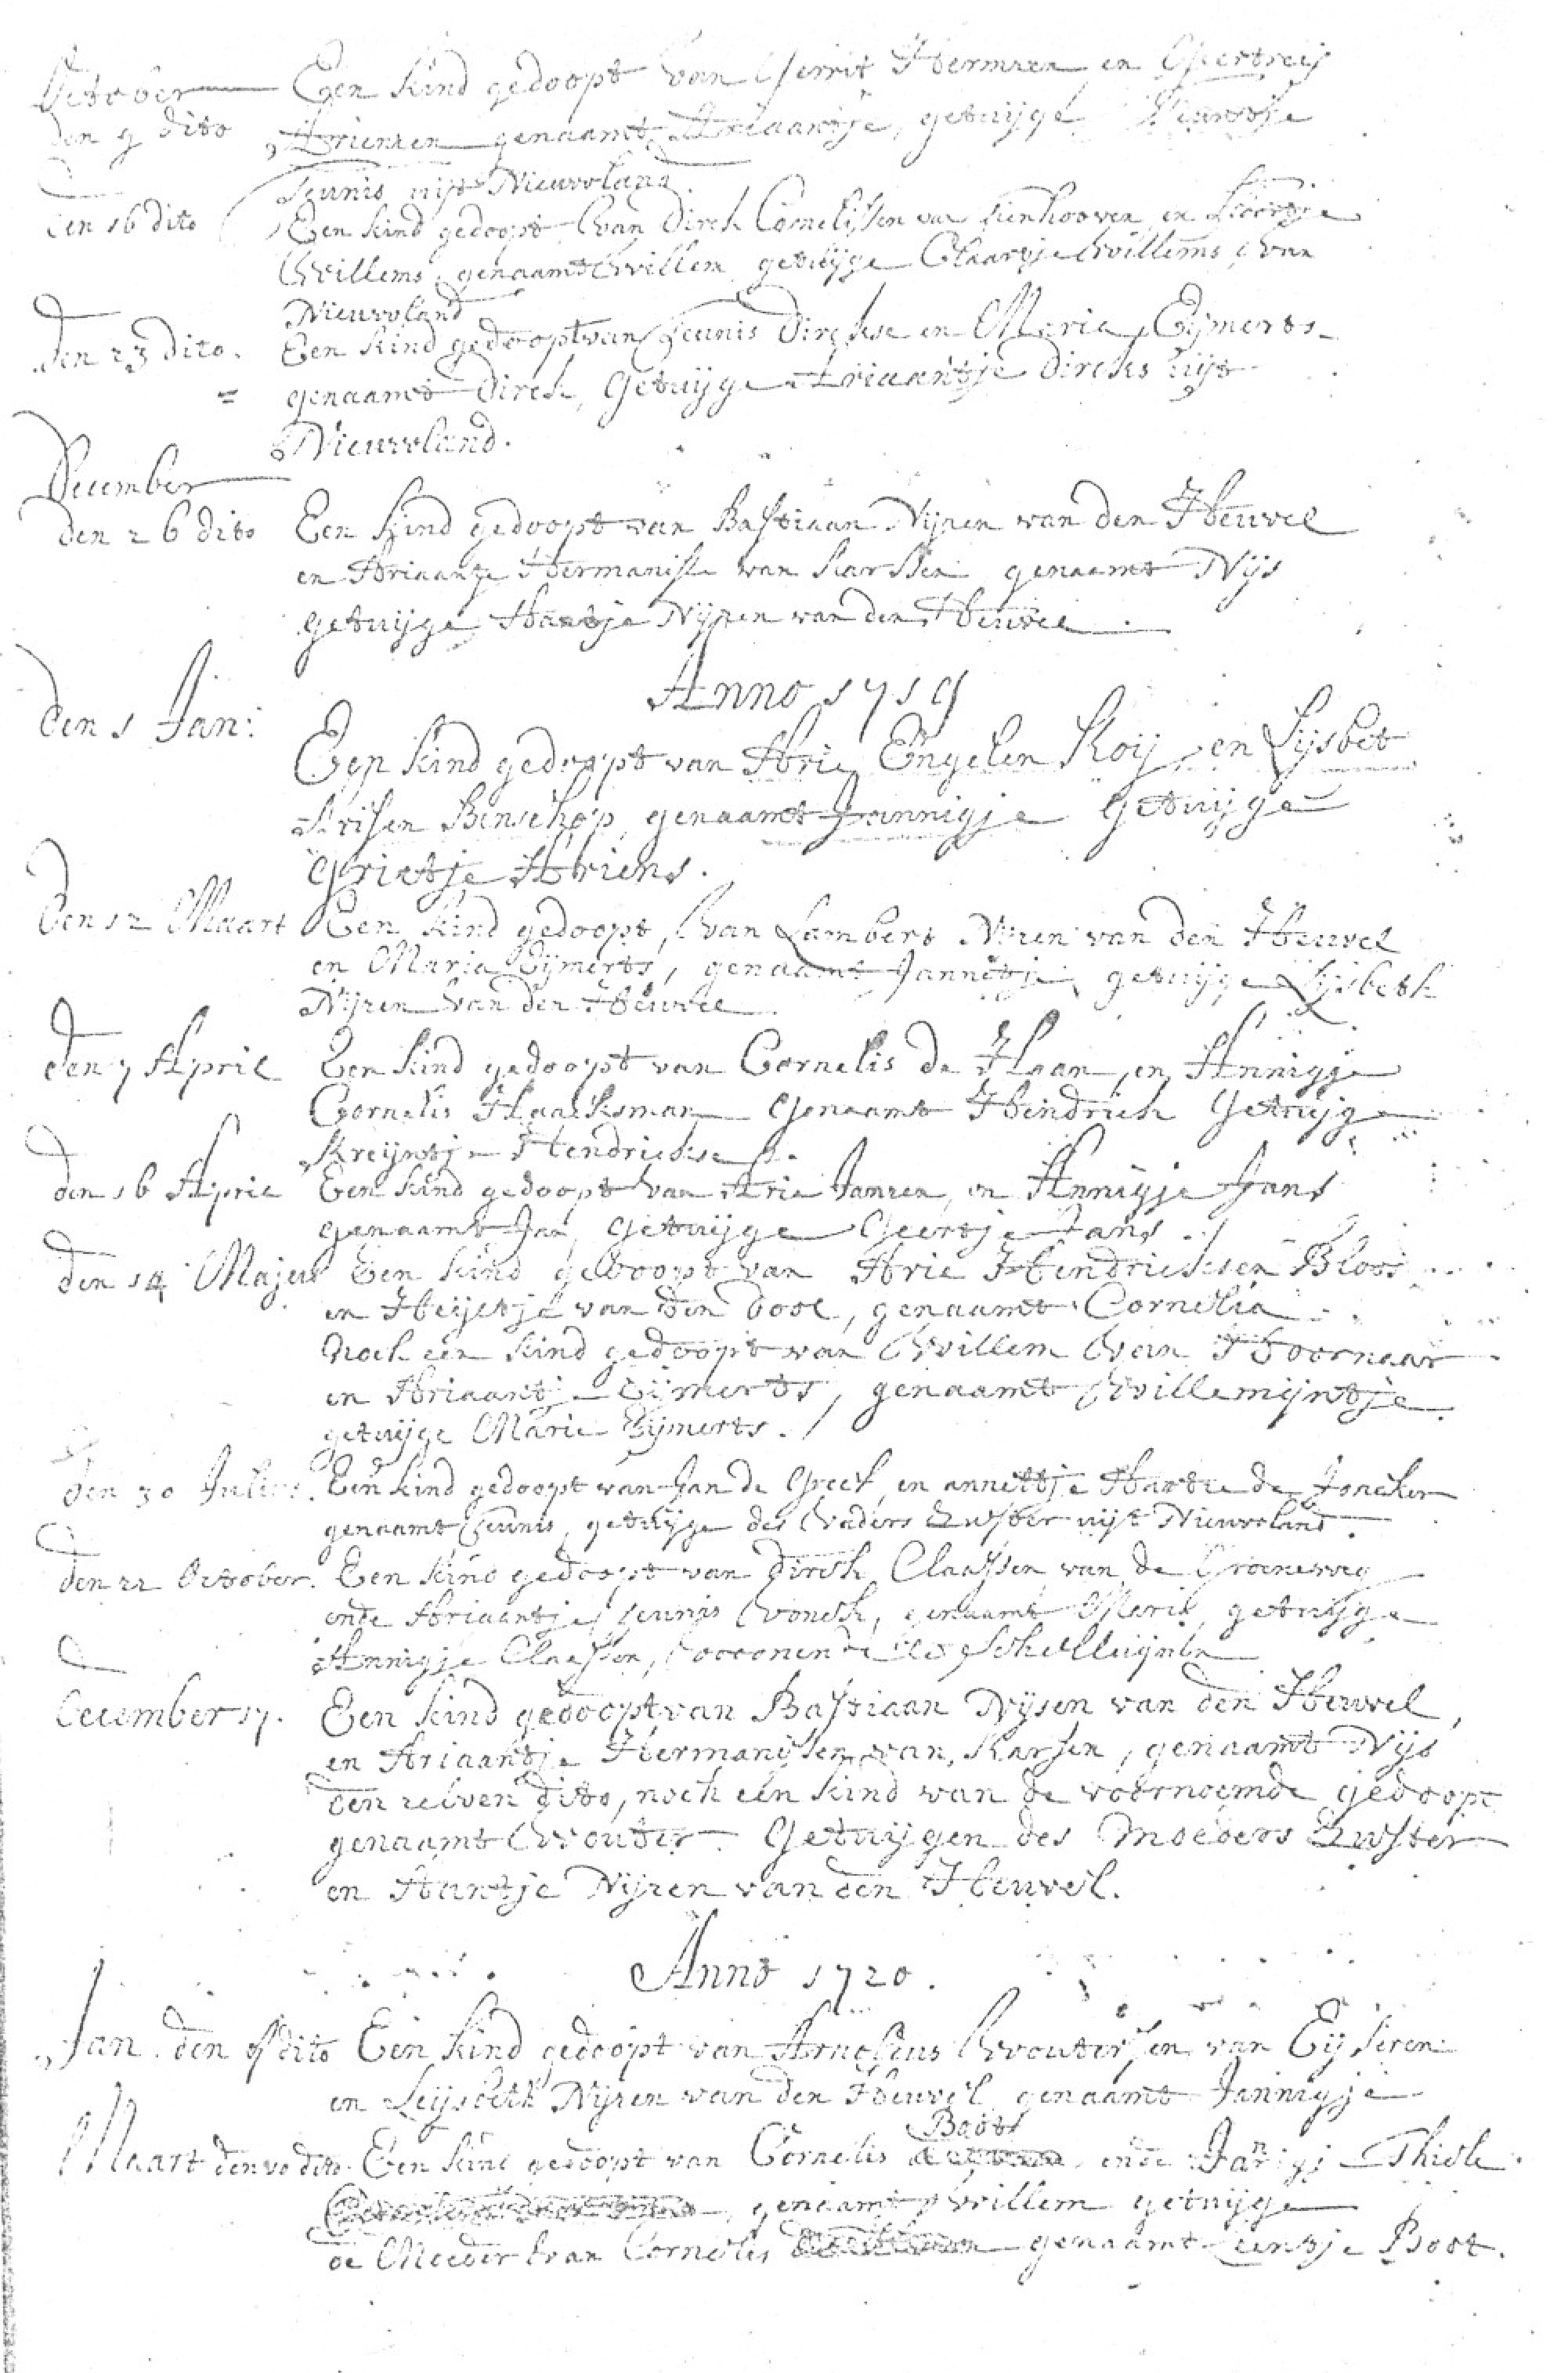 October Een kind gedoopt van Gerrit Hermzen en Geertreij
den 9 dito Arienzen genaamt Ariaantje, getuijge
Teunis uijt Nieuwland.
den 16 dito Een kind gedoopt van Dirck Cornelissen van Lienhooven en
Willems, genaamt Willem getuijge Claartje Willems, van
Nieuwland
den 23 dito. Een kind gedoopt van Teunis Dirckse en Maria Eijmerts
genaamt Dirck, Getuijge Ariaantje Dircks uijt
Nieuwland.
December
den 26 dito Een kind gedoopt van Bastiaan Nijzen van den Heuvel
en Ariaantje Hermanisse van Karssen genaamt Nijs
getuijge Nijzen van den Heuvel.
Anno 1719
den 1 Jan: Een kind gedoopt van Arie Engelen Koij en Lijsbet
Arisen Benschop, genaamt Jannigje Getuijge
Grietje Ariens.
den 12 Maart Een kind gedoopt, van Lambert Nijzen van den Heuvel
en Maria Eijmerts, genaamt Jannetje, getuijge Lijsbeth
Nijzen van den Heuvel.
den 7 April Een kind gedoopt van Cornelis de Haan, en Annigje
Cornelis Haaksman genaamt Hendrick Getuijge
Kreijntje Hendrickse
den 16 April Een kind gedoopt van Arie Janzen, en Annigje Jans
genaamt Jan, Getuijge Geertje Jans.
den 14 Majus Een kind gedoopt van Arie Hendricksen Bloos
en Heijltje van den Dool, genaamt Cornelia
Noch een kind gedoopt van Willem van Hoornaar
en Ariaantje Eijmerts, genaamt Willemijntje
getuijge Marie Eijmerts.
den 30 Julius. Een kind gedoopt van Jan de Greef, en annettje de Joncker
genaamt Teunis, getuijge des Vaders Zuster uijt Nieuwland.
den 22 October. Een kind gedoopt van Dirck Claassen van de Groeneweg
ende Ariaantje Teunis Vonck, genaamt Merik, getuijge
Annigje Claassen, woonende tot Schelluijnen
December 17. Een kind gedoopt van Bastiaan Nijsen van den Heuvel,
en Ariaantje Hermanissen van Karsen, genaamt Nijs
den zelven dito, noch een kind van de voornoemde gedoopt
genaamt Wouter. Getuijgen des Moeders Zuster
en Nijzen van den Heuvel.
Anno 1720.
Jan. den dito Een kind gedoopt van Arnoldus Woutersen van Eijseren
en Leijsbeth Nijzen van den Heuvel genaamt Jannigje
Boots
Maart den dito. Een kind gedoopt van Cornelis ende Jannigje Thiele
genaamt Willem getuijge
de Moeder van Cornelis genaamt Leentje Boot.